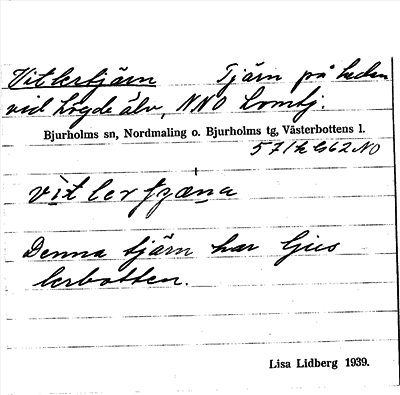 Vitlertjärn Tjärn på heden
vid Lögde älv, NNO Lomtj.
Bjurholms sn, Nordmaling o. Bjurholms tg, Västerbottens l.
57/2 G62 NO
vitlertjæ̣na
Denna tjärn har ljus
lerbotten.
Lisa Lidberg 1939.